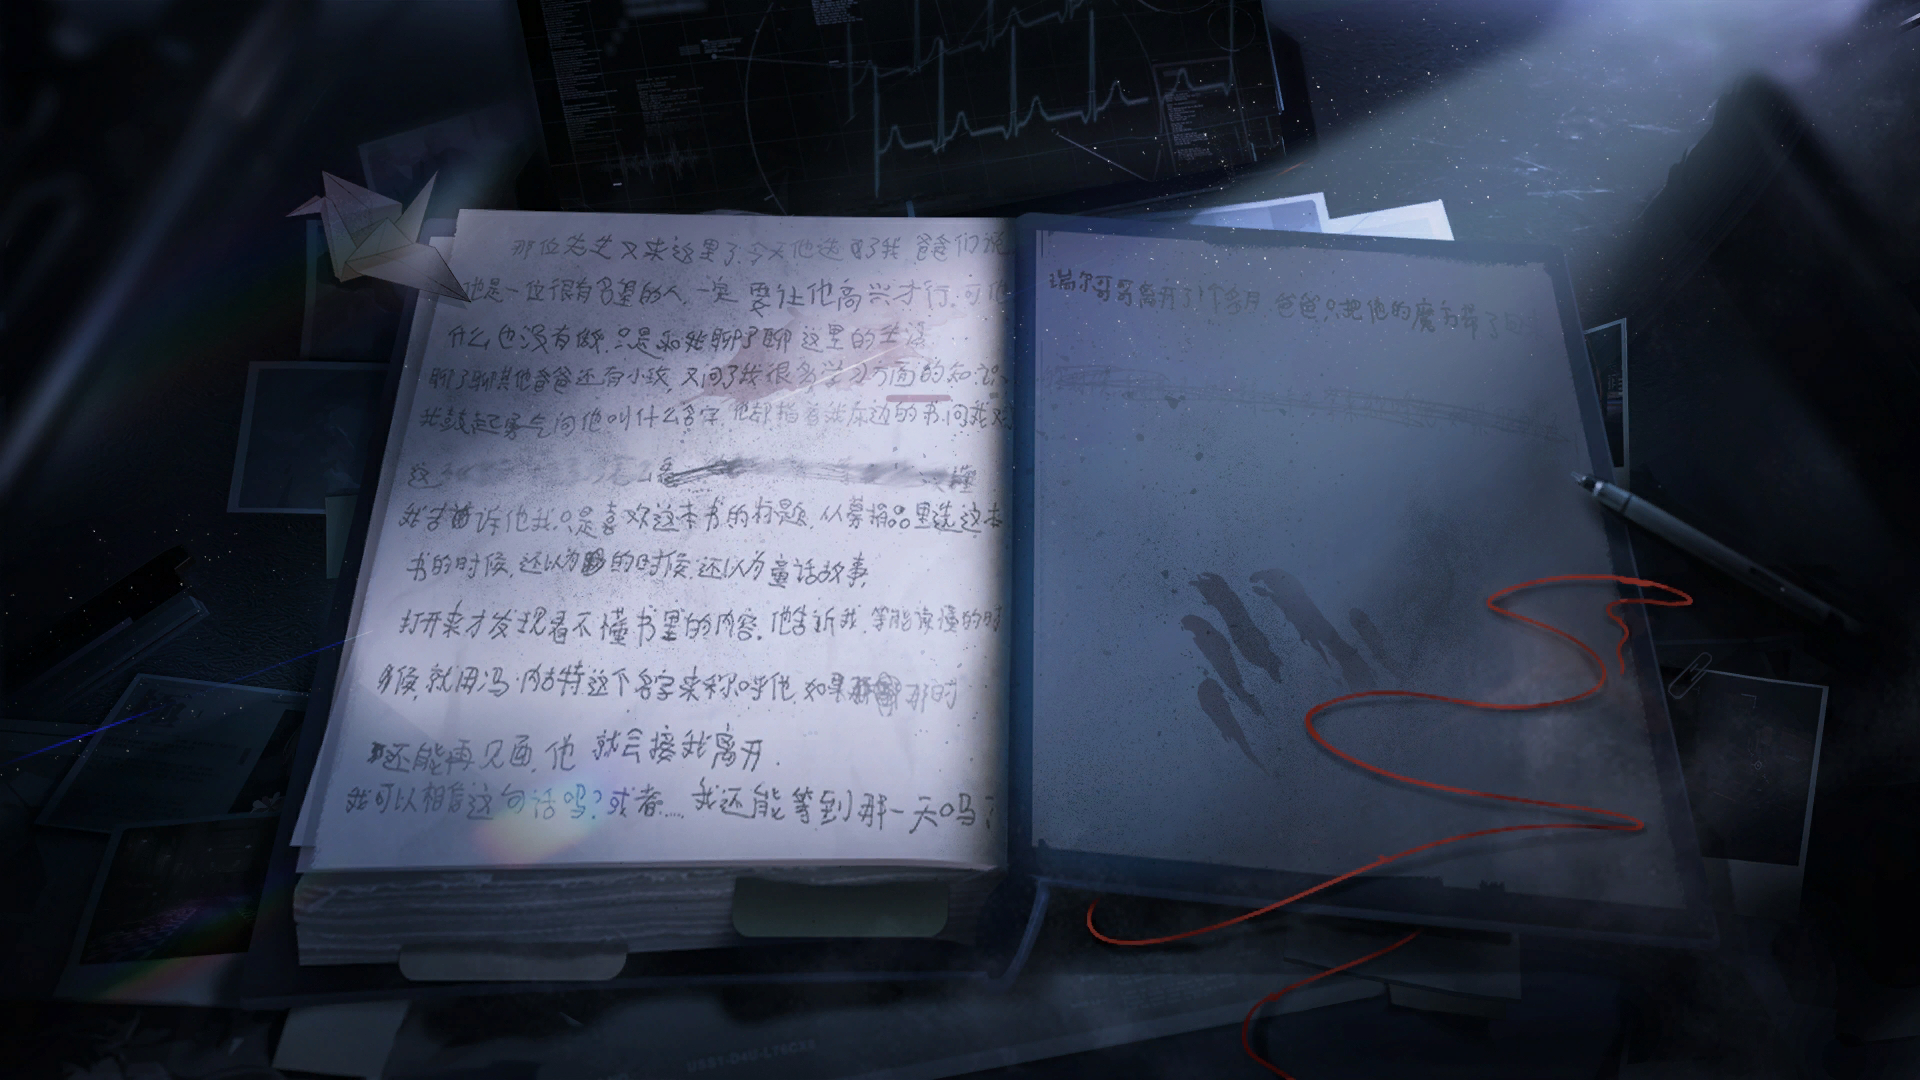 那位先生又来这里了,今天他选了我,爸爸们说
他是一位很有名望的人,一定要让他高兴才行,可他
什么也没有做,只是和我聊了聊这里的生活
聊了聊其他爸爸还有小孩,又问了我很多学习方面的知识
我鼓起勇气问他叫什么名字,他却指着我床边的书,问我
这
我告诉他我只是喜欢这本书的标题,从募捐品里选这本
书的时候,还以为的时候,还以为童话故事,
打开来才发现看不懂书里的内容,他告诉我,等能读懂的时
候,就用冯·内古特这个名字来称呼他,如果那时
还能再见面,他就会接我离开.
我可以相信这句话吗?或者……我还能等到那一天吗?
瑞尔哥哥离开了1个多月,爸爸只把他的魔方带了